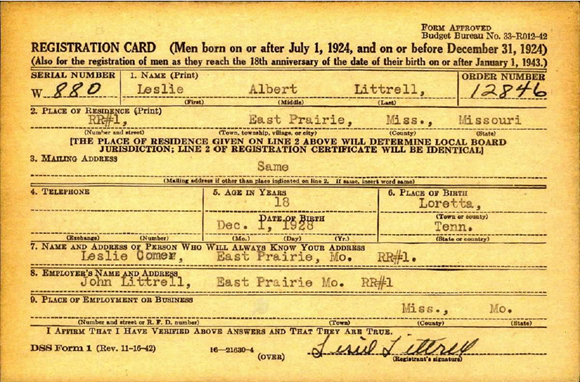 FORM APPROVED
Budget Bureau No. 33-R012-42
REGISTRATION CARD (Men born on or after July 1, 1924, and on or before December 31, 1924)
(Also for the registration of men as they reach the 18th anniversary of the date of their birth on or after January 1, 1943.)
SERIAL NUMBER 1. NAME (Print) ORDER NUMBER
W 880 Leslie Albert Littrell, 12846
(First) (Middle) (Last)
2. PLACE OF RESIDENCE (Print)
RR#1, East Prairie, Miss., Missouri
(Number and street) (Town, township, village, or city) (County) (State)
[THE PLACE OF RESIDENCE GIVEN ON LINE 2 ABOVE WILL DETERMINE LOCAL BOARD
JURISDICTION; LINE 2 OF REGISTRATION CERTIFICATE WILL BE IDENTICAL]
3. MAILING ADDRESS
Same
(Mailing address if other than place indicated on line 2. If same, insert word same)
4. TELEPHONE 5. AGE IN YEARS 6. PLACE OF BIRTH
18 Loretta,
DATE OF BIRTH (Town or county)
Dec. 1, 1928 Tenn.
(Exchange) (Number) (Mo.) (Day) (Yr.) (State or country)
7. NAME AND ADDRESS OF PERSON WHO WILL ALWAYS KNOW YOUR ADDRESS
Leslie Comer, East Prairie, Mo. RR#1.
8. EMPLOYER'S NAME AND ADDRESS
John Littrell, East Prairie Mo. RR#1
9. PLACE OF EMPLOYMENT OR BUSINESS
Miss., Mo.
(Number and street or R. F. D. number) (Town) (County) (State)
I AFFIRM THAT I HAVE VERIFIED ABOVE ANSWERS AND THAT THEY ARE TRUE.
DSS Form 1 (Rev. 11-16-42) 16—21630-4 Littrell
(OVER) (Registrant's signature)